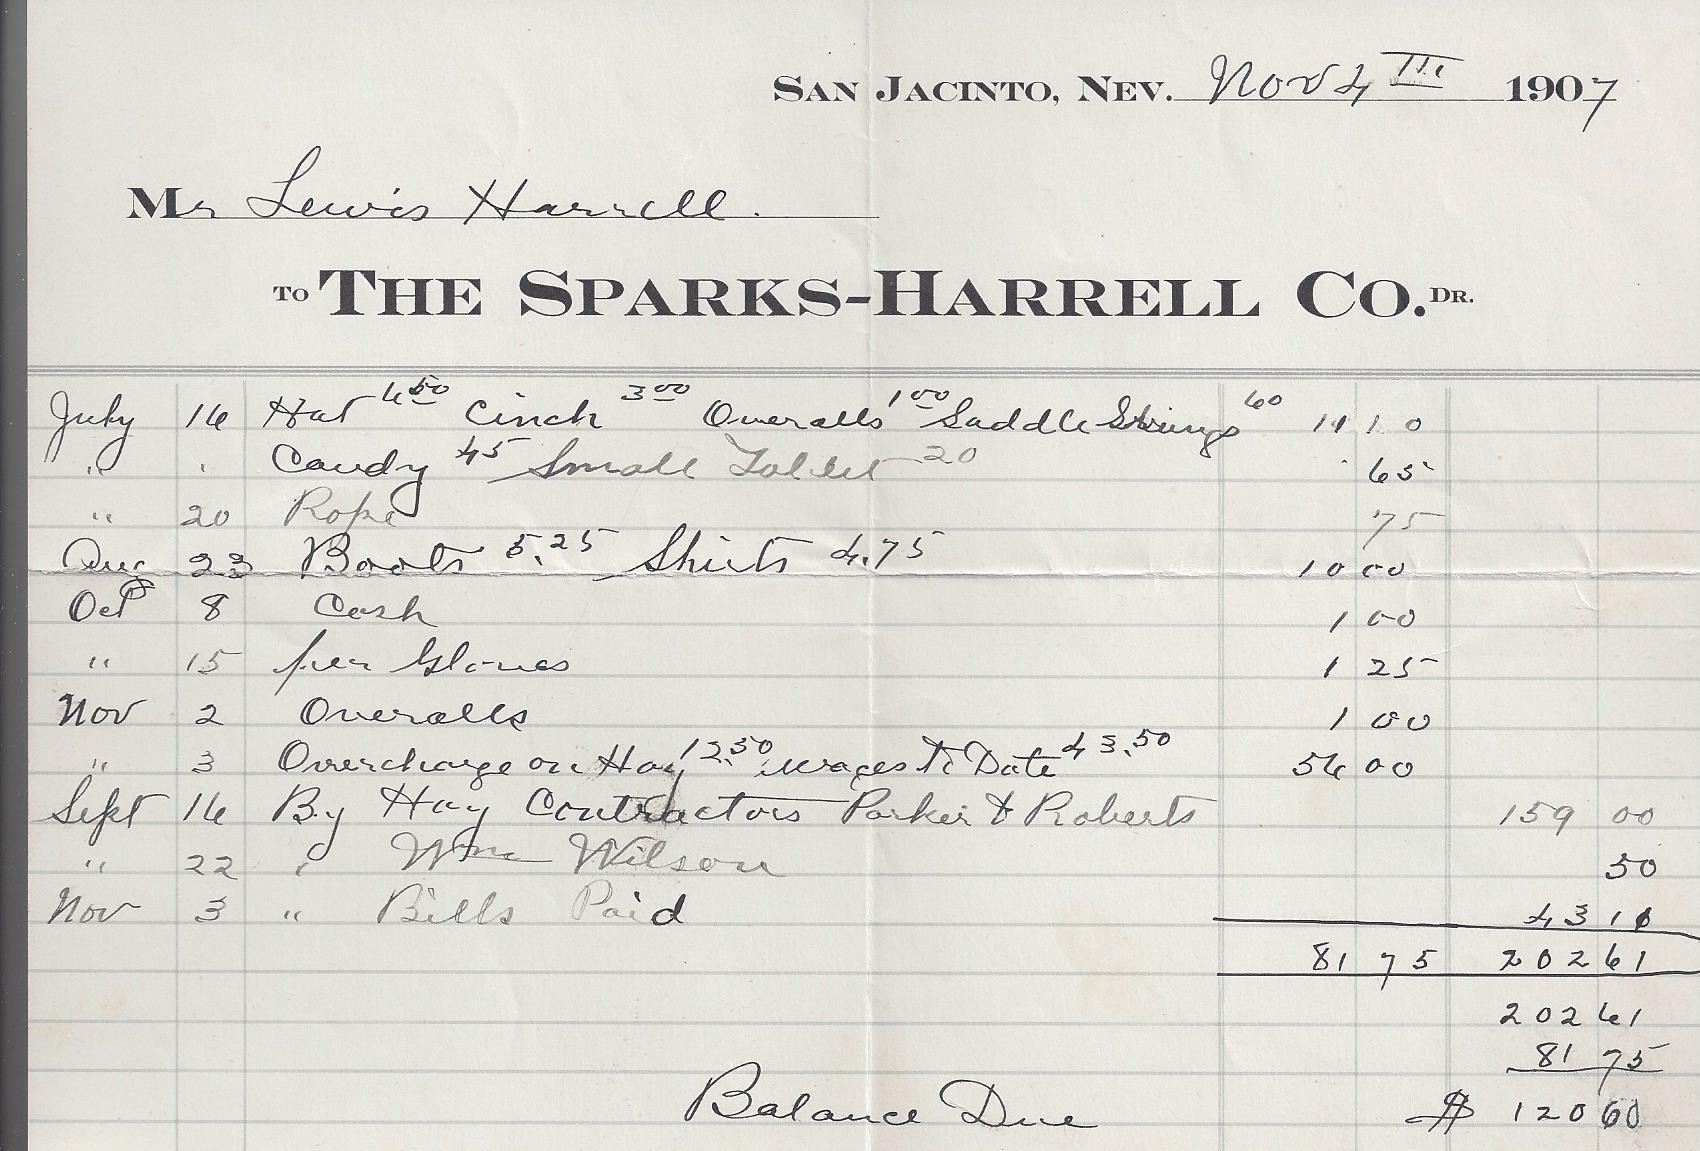 SAN JACINTO, NEV. Nov 4 th 1907
Mr Lewis Harrell.
TO THE SPARKS-HARRELL CO. DR.
July 16 Hat 6 50 Cinch 3 00 Overalls 1 00 Saddle Strings 60 11 10
" " Candy 45 Small Tablet 20 65
" 20 Rope 75
Aug 23 Boots 5.25 Shirts 4.75 10 00
Oct 8 Cash 1 00
" 15 per Gloves 1 25
Nov 2 Overalls 1 00
" 3 Overcharge on Hay 12.50 wages To Date 43.50 56 00
Sept 16 By Hay Contractors Parker & Roberts 159 00
" 22 " Wm Wilson 50
Nov 3 " Bills Paid 43 11
81 75 202 61
202 61
81 75
Balance Due $ 120 60